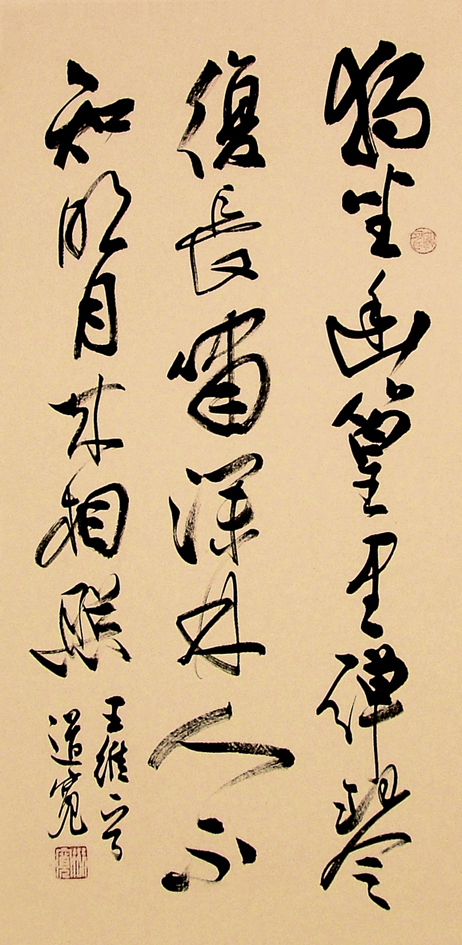 獨坐幽篁里彈琴
復長嘯深林人不
知明月來相照
王維
道寬